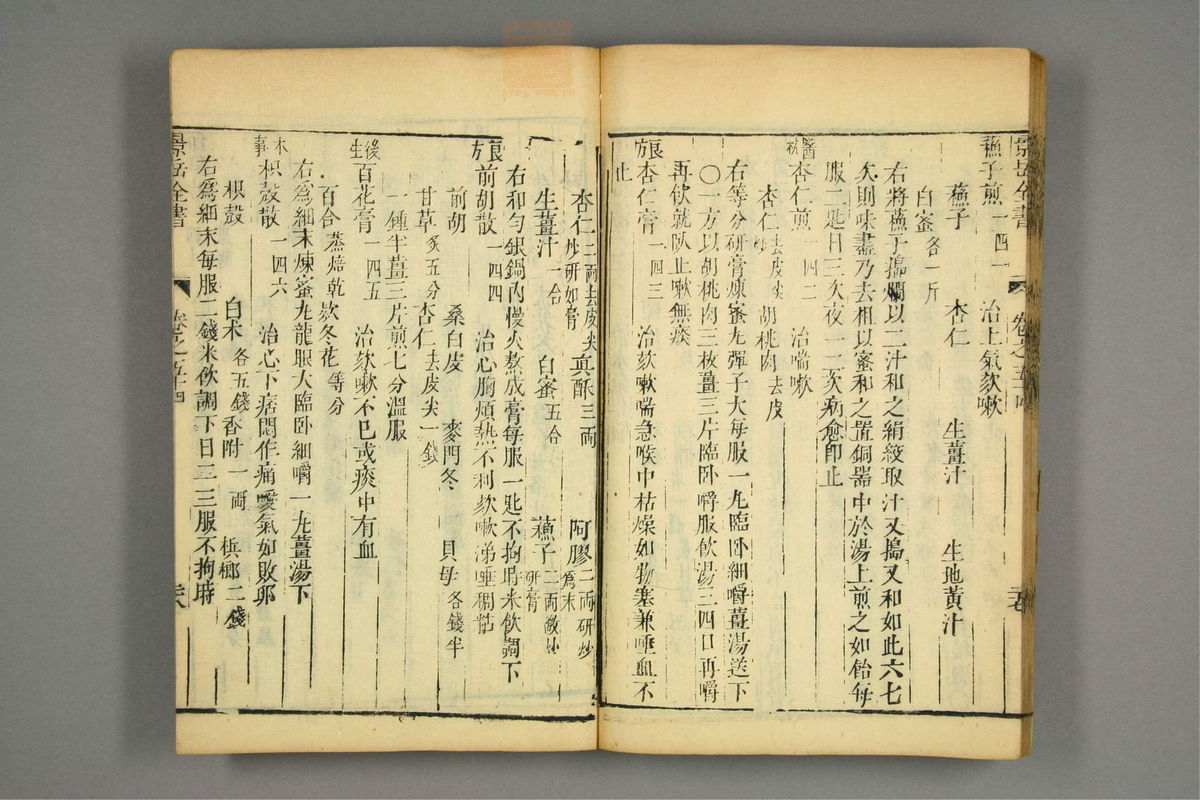 景岳全書 卷之五十四
蘇子煎一四一 治上氣欬嗽
蘇子 杏仁 生薑汁 生地黃汁
白蜜各一斤
右將蘇子搗爛以二汁和之絹絞取汁又搗又和如此六七
次則味盡乃去柤以蜜和之置銅器中於湯上煎之如飴每
服二匙日三次夜一二次病愈即止
醫林杏仁煎一四二 治喘嗽
杏仁去皮尖炒 胡桃肉去皮
右等分研膏煉蜜丸彈子大每服一丸臨臥細嚼薑湯送下
○一方以胡桃肉三枚薑三片臨臥嚼服飲湯三四口再嚼
再飲就臥止嗽無痰
良方杏仁膏一四三 治欬嗽喘急喉中枯燥如物塞兼唾血不
止
杏仁二兩去皮尖炒研如膏 真酥三兩 阿膠二兩研炒為末
生薑汁一合 白蜜五合 蘇子二兩微炒研膏
右和勻銀鍋內慢火熬成膏每服一匙不拘時米飲調下
良方前胡散一四四 治心胸煩熱不利欬嗽涕唾稠粘
前胡 桑白皮 麥門冬 貝母各錢半
甘草炙五分 杏仁去皮尖一錢
一鍾半薑三片煎七分溫服
後生百花膏一四五 治欬嗽不已或痰中有血
百合蒸焙乾 欵冬花等分
右為細末煉蜜丸龍眼大臨臥細嚼一丸薑湯下
本事枳殼散一四六 治心下痞悶作痛噯氣如敗卵
枳殼 白朮各五錢 香附一兩 檳榔二錢
右為細末每服二錢米飲調下日二三服不拘時
景岳全書 卷之五十四